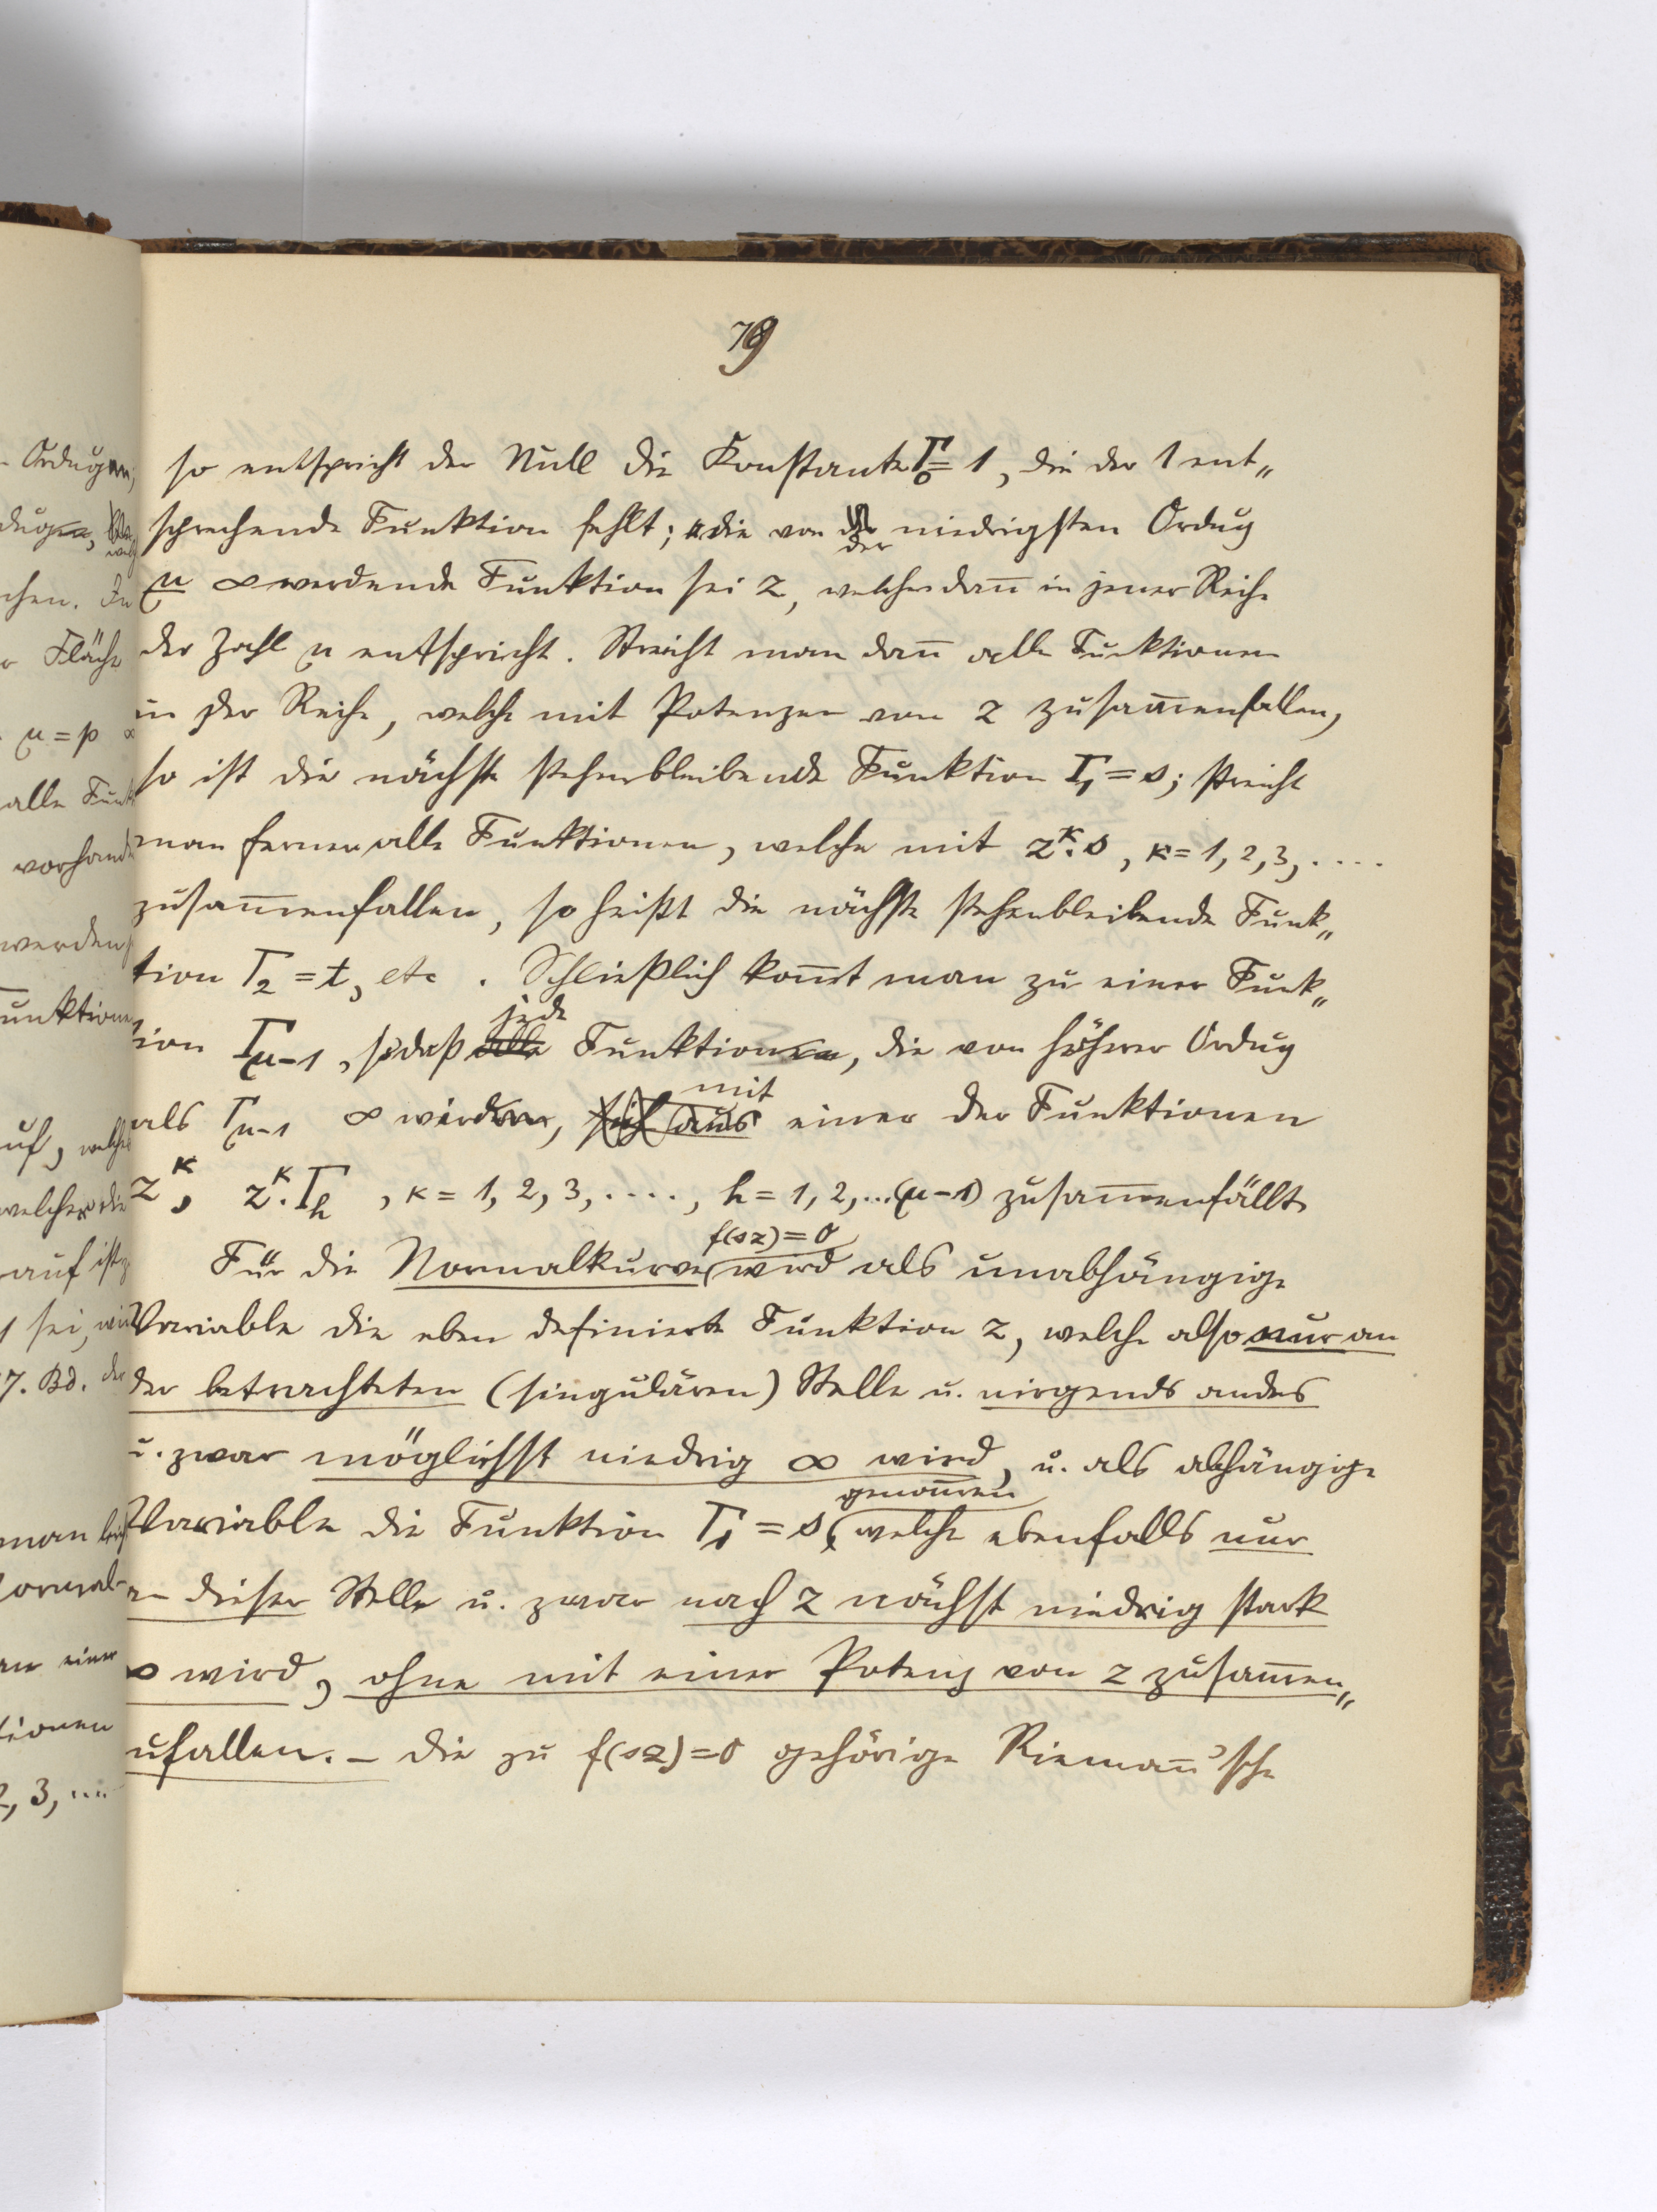 79
so entspricht der Null die Konstante Γ₀ = 1, die der 1 ent„
sprechende Funktion fehlt; die von der niedrigsten Ordug
μ ∞ werdende Funktion sei z, welche dañ in jener Reihe
der Zahl μ entspricht. Streicht man dañ alle Funktionen
in der Reihe, welche mit Potenzen von z zusam̄enfallen,
so ist die nächste stehenbleibende Funktion Γ₁ = s; streicht
man ferner alle Funktionen, welche mit z^κ. s, κ = 1, 2, 3, ....
zusam̄enfallen, so heißt die nächste stehenbleibende Funk„
tion Γ₂ = t, etc. Schließlich kom̄t man zu einer Funk„
tion Γμ-1, sodaß jede Funktion, die von höherer Ordug
als Γμ-1 ∞ wird, mit einer der Funktionen
z^κ, z^κ. Γh, κ = 1, 2, 3, ...., h = 1, 2, ...(μ-1) zusam̄enfällt.
Für die Normalkurve f(sz)=0 wird als unabhängige
Variable die eben definierte Funktion z, welche also nur an
der betrachteten (singulären) Stelle u. nirgends anders
u. zwar möglichst niedrig ∞ wird, u. als abhängige
Variable die Funktion Γ₁ = s genom̄en, welche ebenfalls nur
an dieser Stelle u. zwar nach z nächst niedrig stark
∞ wird, ohne mit einer Potenz von z zusam̄en„
zufallen. – Die zu f(sz)=0 gehörige Riemañ'sche